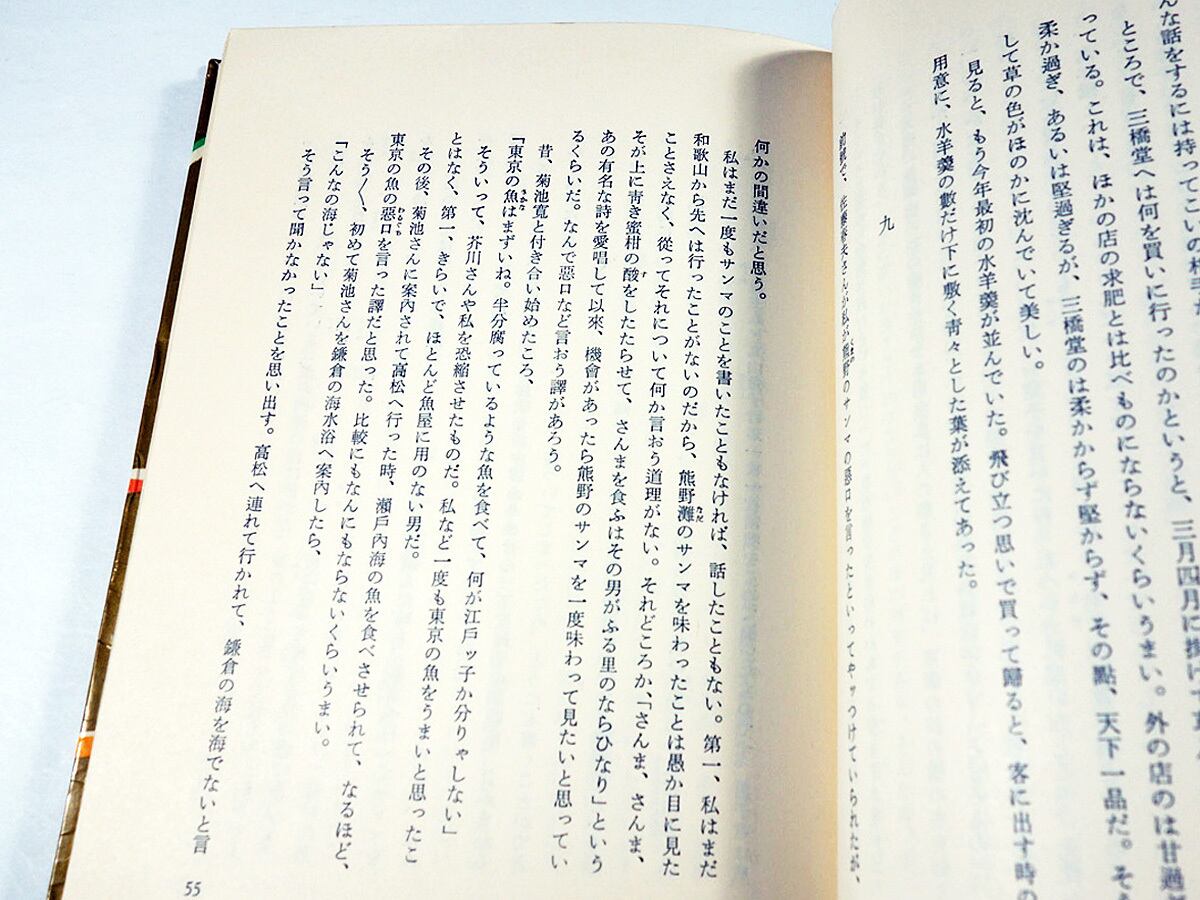 んな話をするには持ってこいの
三月四月に掛けて
ところで、三橋堂へは何を買いに行ったのかというと、
っている。これは、ほかの店の求肥とは比べものにならないくらいうまい。外の店のは甘過
柔か過ぎ、あるいは堅過ぎるが、三橋堂のは柔かからず堅からず、その點、天下一品だ。そ
して草の色がほのかに沈んでいて美しい。
見ると、もう今年最初の水羊羹が並んでいた。飛び立つ思いで買って歸ると、客に出す時の
用意に、水羊羹の數だけ下に敷く靑々とした葉が添えてあった。
九
佐藤春夫さんが私が熊野のサンマの惡口を言ったといってやッつけていられたが、
何かの間違いだと思う。
私はまだ一度もサンマのことを書いたこともなければ、話したこともない。第一、私はまだ
和歌山から先へは行ったことがないのだから、熊野灘のサンマを味わったことは愚か目に見た
ことさえなく、從ってそれについて何か言おう道理がない。それどころか、「さんま、さんま、
そが上に靑き蜜柑の酸をしたたらせて、さんまを食ふはその男がふる里のならひなり」という
あの有名な詩を愛唱して以來、機會があったら熊野のサンマを一度味わって見たいと思ってい
るくらいだ。なんで惡口など言おう譯があろう。
昔、菊池寬と付き合い始めたころ、
「東京の魚はまずいね。半分腐っているような魚を食べて、何が江戶ッ子か分りゃしない」
そういって、芥川さんや私を恐縮させたものだ。私など一度も東京の魚をうまいと思ったこ
とはなく、第一、きらいで、ほとんど魚屋に用のない男だ。
その後、菊池さんに案內されて高松へ行った時、瀨戶內海の魚を食べさせられて、なるほど、
東京の魚の惡口を言った譯だと思った。比較にもなんにもならないくらいうまい。
そう〳〵、初めて菊池さんを鎌倉の海水浴へ案內したら、
「こんなの海じゃない」
そう言って聞かなかったことを思い出す。高松へ連れて行かれて、鎌倉の海を海でないと言
55